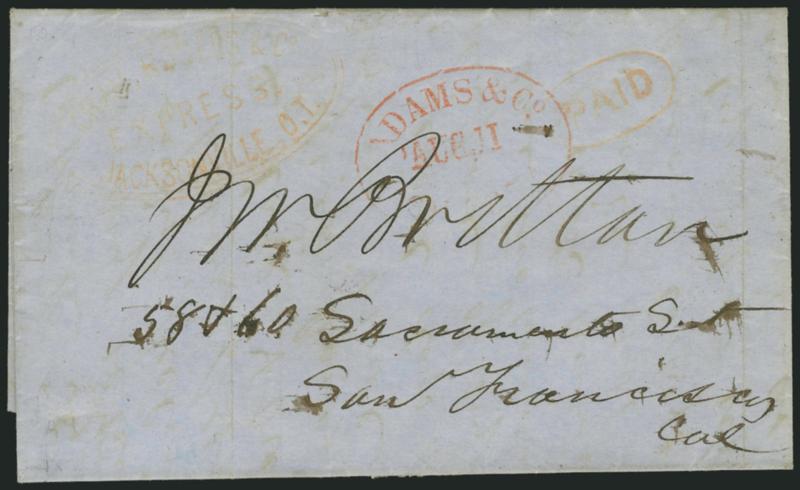 & Co
EXPRESS
JACKSONVILLE, O.T.
ADAMS & Co.
AUG 11
PAID
J W Britton
58 & 60 Sacramento St
San Francisco
Cal